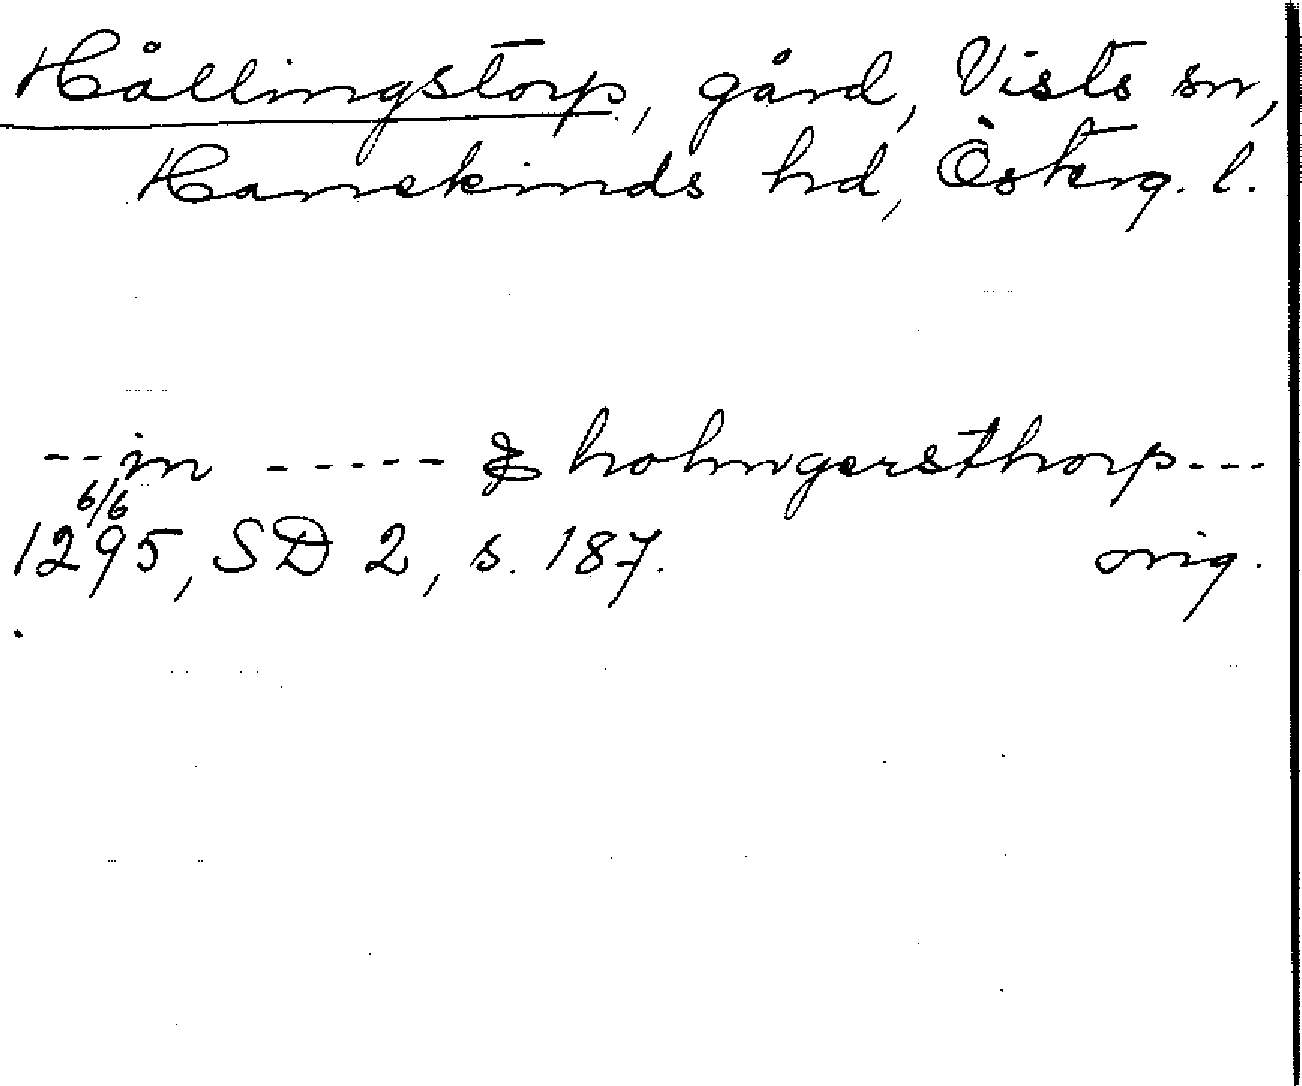 Hållingstorp, gård, Vists sn,
Hanekinds hd, Österg. l.
--in ----- & holmgersthorp---
6/6
1295, SD 2, s. 187. orig.